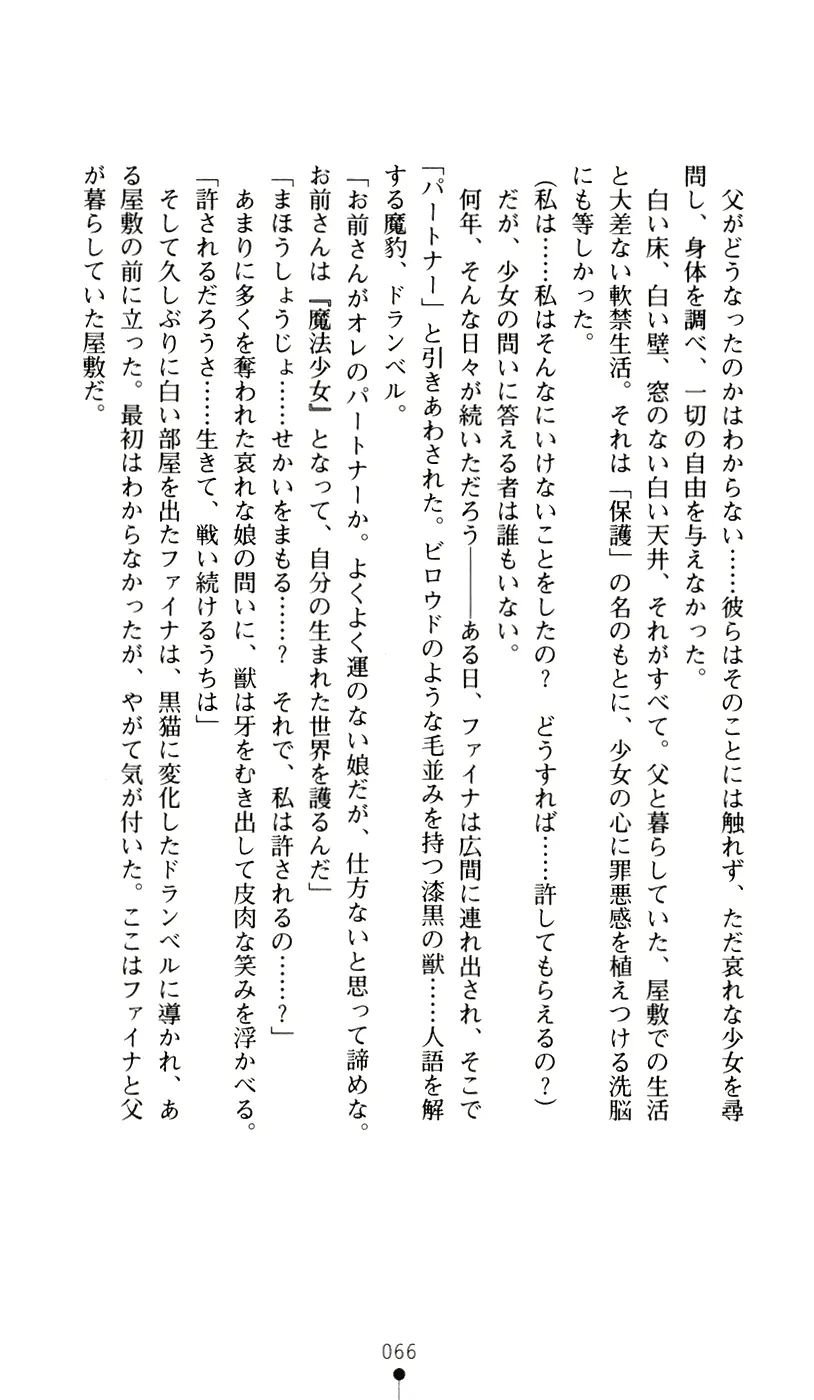 父がどうなったのかはわからない……彼らはそのことには触れず、ただ哀れな少女を尋
問し、身体を調べ、一切の自由を与えなかった。
　白い床、白い壁、窓のない白い天井、それがすべて。父と暮らしていた、屋敷での生活
と大差ない軟禁生活。それは「保護」の名のもとに、少女の心に罪悪感を植えつける洗脳
にも等しかった。
（私は……私はそんなにいけないことをしたの？　どうすれば……許してもらえるの？）
　だが、少女の問いに答える者は誰もいない。
　何年、そんな日々が続いただろう――ある日、ファイナは広間に連れ出され、そこで
「パートナー」と引きあわされた。ビロウドのような毛並みを持つ漆黒の獣……人語を解
する魔豹、ドランベル。
「お前さんがオレのパートナーか。よくよく運のない娘だが、仕方ないと思って諦めな。
お前さんは『魔法少女』となって、自分の生まれた世界を護るんだ」
「まほうしょうじょ……せかいをまもる……？　それで、私は許されるの……？」
　あまりに多くを奪われた哀れな娘の問いに、獣は牙をむき出して皮肉な笑みを浮かべる。
「許されるだろうさ……生きて、戦い続けるうちは」
　そして久しぶりに白い部屋を出たファイナは、黒猫に変化したドランベルに導かれ、あ
る屋敷の前に立った。最初はわからなかったが、やがて気が付いた。ここはファイナと父
が暮らしていた屋敷だ。
066